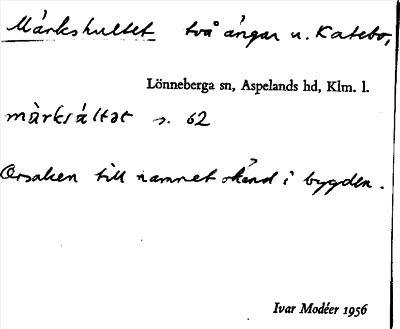 Märkshultet två ängar u. Katebo,
Lönneberga sn, Aspelands hd, Klm. l.
màrksáltət s. 62
Orsaken till namnet okänd i bygden.
Ivar Modéer 1956